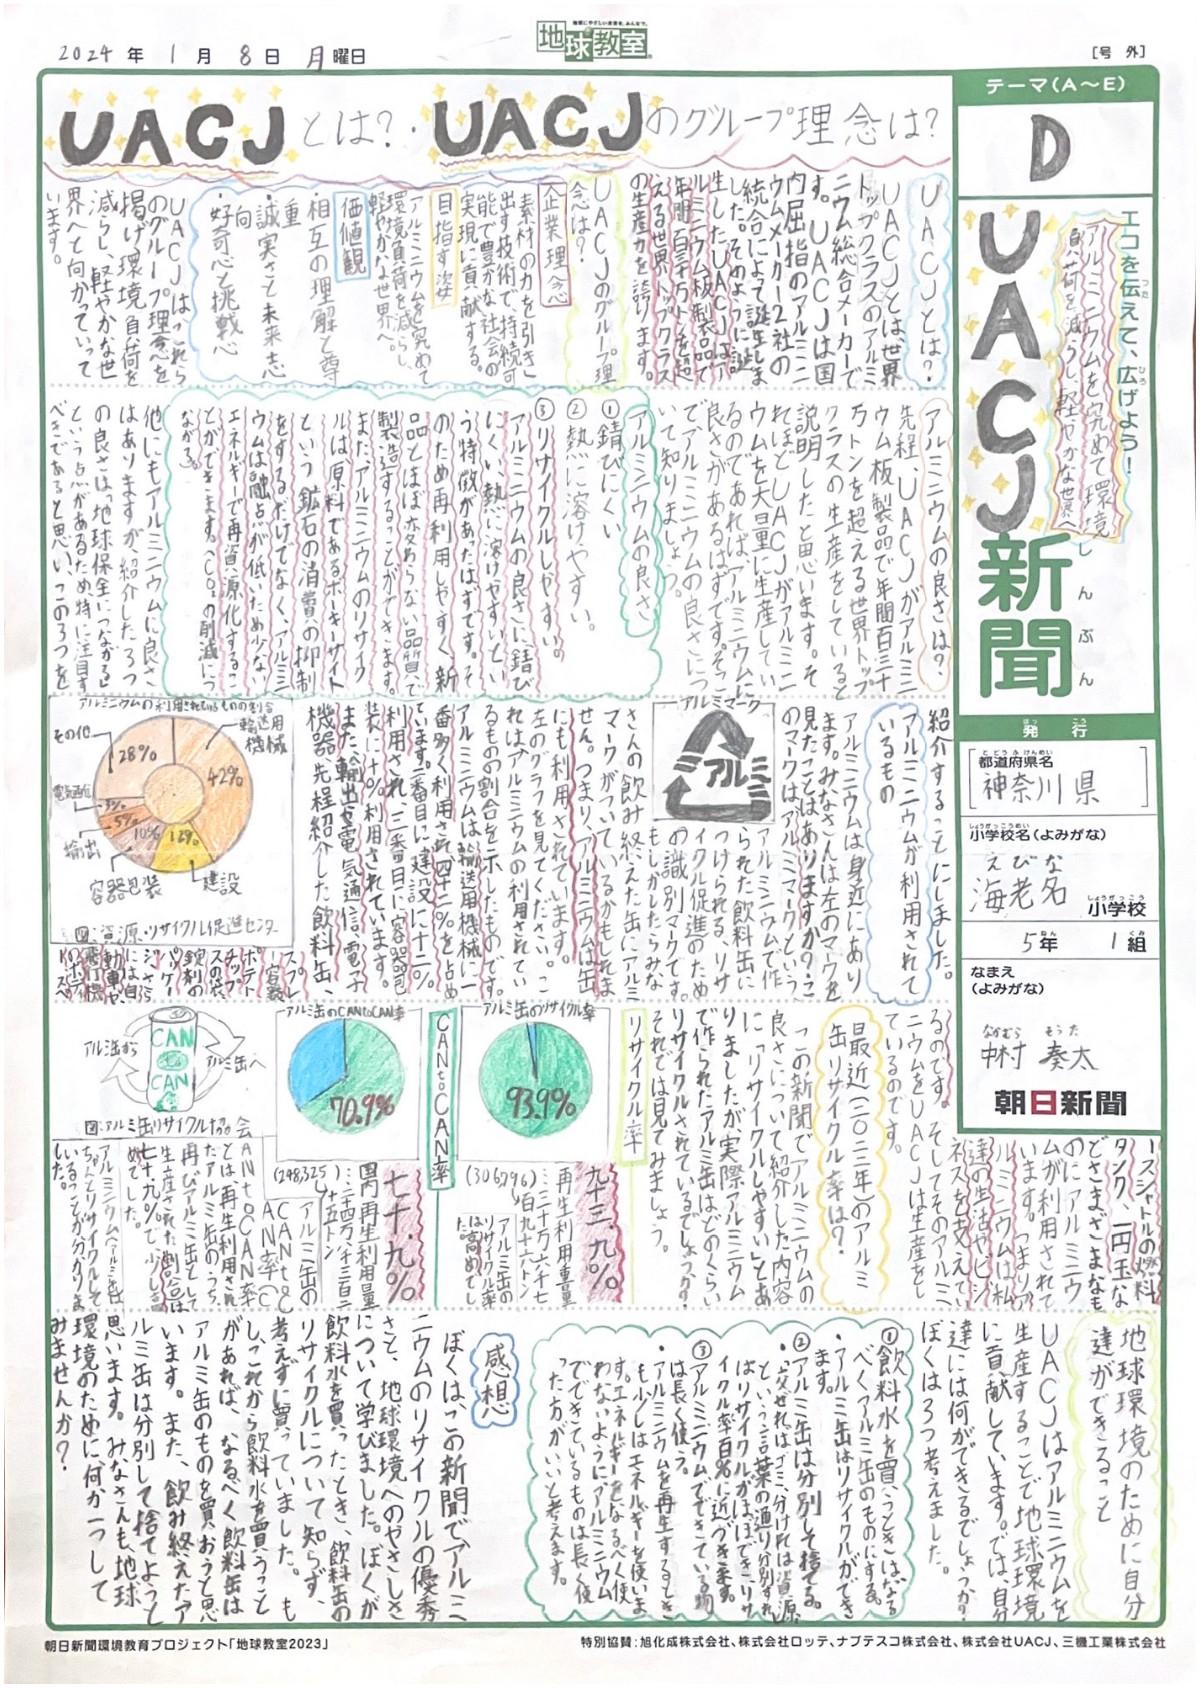 2024年1月8日月曜日
地球にやさしい未来を、みんなで。
地球教室
[号外]
テーマ(A〜E)
D
エコを伝えて、広げよう!
つた
ひろ
アルミニウムを究めて環境
負荷を減らし、軽やかな世界へ
UACJ新聞
しんぶん
発行
はっこう
都道府県名
とどうふけんめい
神奈川県
小学校名(よみがな)
しょうがっこうめい
えびな
海老名
小学校
しょうがっこう
5年1組
ねん
くみ
なまえ
(よみがな)
なかむら そうた
中村 奏太
朝日新聞
UACJとは?・UACJのグループ理念は?
UACJとは?
UACJとは、世界
トップクラスのアルミ
ニウム総合メーカーで
す。UACJは国
内屈指のアルミニ
ウムメーカー2社の
統合によって誕生しま
した。そのように誕
生したUACJはア
ルミニウム板製品で
年間百三十万トンを超
える世界トップクラス
の生産力を誇ります。
UACJのグループ理
念は?
企業理念
素材の力を引き
出す技術で、持続可
能で豊かな社会の
実現に貢献する。
目指す姿
アルミニウムを究めて
環境負荷を減らし、
軽やかな世界へ。
価値観
・相互の理解と尊
重
・誠実さと未来志
向
・好奇心と挑戦心
UACJはこれら
のグループ理念を
掲げ環境負荷を
減らし、軽やかな世
界へと向かっていって
います。
アルミニウムの良さは?
先程、UACJがアルミニ
ウム板製品で年間百三十
万トンを超える世界トップ
クラスの生産をしていると
説明したと思います。そ
れほどUACJがアルミニ
ウムを大量に生産してい
るのであれば、アルミニウムに
良さがあるはずです。そこ
でアルミニウムの良さにつ
いて知りましょう。
アルミニウムの良さ
①錆びにくい
②熱に溶けやすい。
③リサイクルしやすい。
アルミニウムの良さに錆び
にくい、熱に溶けやすいとい
う特徴があったはずです。そ
のため再利用しやすく新
品とほぼ変わらない品質で
製造することができます。
また、アルミニウムのリサイク
ルは原料であるボーキサイト
という鉱石の消費の抑制
をするだけでなく、アルミニ
ウムは融点が低いため少ない
エネルギーで再資源化するこ
とができます。(CO₂の削減につ
ながる。)
他にもアルミニウムに良さ
はありますが、紹介した3つ
の良さは「地球保全につながる」
という点があるため、特に注目す
べきであると思い、この3つを
紹介することにしました。
アルミニウムが利用されて
いるもの
アルミニウムは身近にあり
ます。みなさんは左のマークを
見たことはありますか?こ
のマークは「アルミマーク」という
アルミマーク
アルミ
アルミニウムで作
られた飲料缶に
つけられる、リサ
イクル促進のため
の識別マークです。
もしかしたらみな
さんの飲み終えた缶にアルミ
マークがついているかもしれま
せん。つまり、アルミニウムは缶
にも利用されています。
左のグラフを見てください。こ
れはアルミニウムの利用されてい
るものの割合を示したものです。
アルミニウムは輸送用機械に一
番多く利用され四十二%を占め
ています。二番目に建設に十二%
利用され、三番目に容器包
装に十%利用されています。
また、輸出や電気通信、電子
機器、先程紹介した飲料缶、
アルミニウムの利用されているものの割合
輸送用
機械
42%
建設
12%
容器包装
10%
輸出
5%
電気通信
3%
その他
28%
図:資源・リサイクル促進センター
スプレ
ー容器
ポテト
チップ
スの袋
錠剤の
パッケー
ジ、さら
には自
動車や
飛行機
のボディ
ー、スペ
ースシャトルの燃料
タンク、一円玉な
どさまざまなも
のにアルミニウ
ムが利用されて
います。つまり、ア
ルミニウムは私
達の生活やビジ
ネスを支えてい
るのです。そしてそのアルミ
ニウムをUACJは生産をし
ているのです。
最近(二〇二二年)のアルミ
缶リサイクル率は?
この新聞でアルミニウムの
良さについて紹介した内容
に「リサイクルしやすい」とあ
りましたが実際アルミニウム
で作られたアルミ缶はどのくらい
リサイクルされているでしょうか?
それでは見てみましょう。
リサイクル率
アルミ缶のリサイクル率
93.9%
九十三.九%
再生利用重量
…三十万六千七
百九十六トン
(306796t)
アルミ缶の
リサイクル率
は高めでし
た。
CANtoCAN率
アルミ缶のCANtoCAN率
70.9%
七十.九%
国内再生利用量
…二十四万八千三百二
十五トン
(248,325t)
アルミ缶の
CANtoC
AN率(C
ANtoCAN率
とは、再生利用され
たアルミ缶のうち、
再びアルミ缶として
生産された割合)は
七十.九%で少し高
めでした。
アルミニウム(アルミ缶)は
ちゃんとリサイクルして
いることが分かりま
した。
アルミ缶から
アルミ缶へ
CAN
to
CAN
図:アルミ缶リサイクル協会
地球環境のために自分
達ができること
UACJはアルミニウムを
生産することで地球環境
に貢献しています。では、自分
達には何ができるでしょうか?
ぼくは3つ考えました。
①飲料水を買うときは、なる
べくアルミ缶のものにする。
・アルミ缶はリサイクルができ
ます。
②アルミ缶は分別して捨てる。
・「混ぜればゴミ、分ければ資源」
という言葉の通り分別すれ
ばリサイクルがほぼでき、リサ
イクル率百%に近づきます。
③アルミニウムでできている物
は長く使う。
・アルミニウムを再生するとき
も少しはエネルギーを使いま
す。エネルギーをなるべく使
わないようにアルミニウム
でできているものは長く使
った方がいいと考えます。
感想
ぼくはこの新聞でアルミ
ニウムのリサイクルの優秀
さと、地球環境へのやさしさ
について学びました。ぼくが
飲料水を買ったとき、飲料缶の
リサイクルについて知らず、
考えずに買っていました。も
し、これから飲料水を買うこと
があれば、なるべく飲料缶は
アルミ缶のものを買おうと思
います。また、飲み終えたア
ルミ缶は分別して捨てようと
思います。みなさんも、地球
環境のために、何か一つして
みませんか?
朝日新聞環境教育プロジェクト「地球教室2023」
特別協賛:旭化成株式会社、株式会社ロッテ、ナブテスコ株式会社、株式会社UACJ、三機工業株式会社